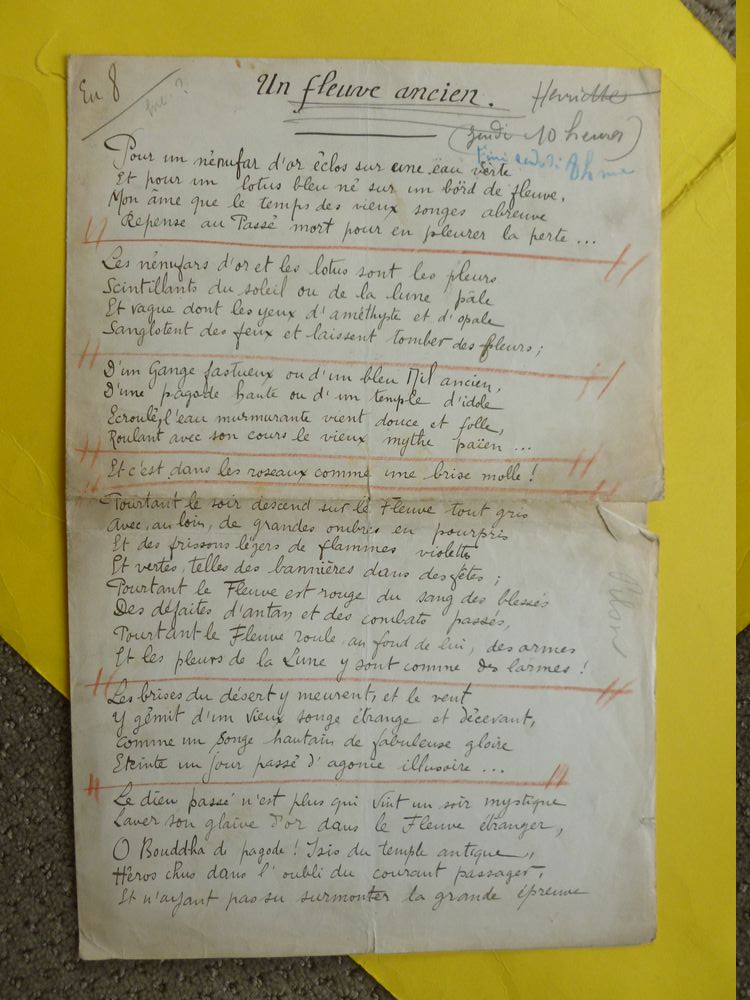 En 8
Un fleuve ancien.
Henriette
(Jeudi 10 heures)
8h
Pour un nénufar d'or éclos sur une eau verte
Et pour un lotus bleu né sur un bord de fleuve,
Mon âme que le temps des vieux songes abreuve
Repense au Passé mort pour en pleurer la perte...
Les nénufars d'or et les lotus sont les pleurs
Scintillants du soleil ou de la lune pâle
Et vague dont les yeux d'améthyste et d'opale
Sanglotent des feux et laissent tomber des fleurs;
D'un Gange fastueux ou d'un bleu Nil ancien,
D'une pagode haute ou d'un temple d'idole
Ecroulé, l'eau murmurante vient douce et folle,
Roulant avec son cours le vieux mythe païen...
Et c'est dans les roseaux comme une brise molle!
Pourtant le soir descend sur le Fleuve tout gris
Avec, au loin, de grandes ombres en pourpris
Et des frissons légers de flammes violettes
Et vertes, telles des bannières dans des fêtes;
Pourtant le Fleuve est rouge du sang des blessés
Des défaites d'antan et des combats passés,
Pourtant le Fleuve roule, au fond de lui, des armes
Et les pleurs de la Lune y sont comme des larmes!
Les brises du désert y meurent, et le vent
Y gémit d'un vieux songe étrange et décevant,
Comme un songe hautain de fabuleuse gloire
Eteinte un jour passé d'agonie illusoire...
Le dieu passé n'est plus qui vint un soir mystique
Laver son glaive d'or dans le Fleuve étranger,
O Bouddha de pagode! Isis du temple antique,
Héros chus dans l'oubli du courant passager,
Et n'ayant pas su surmonter la grande épreuve